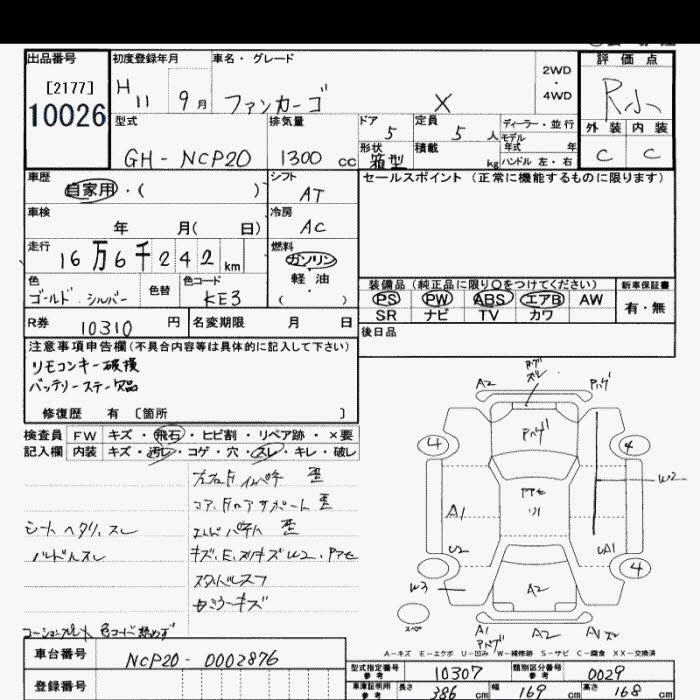 出品番号
[2177]
10026
初度登録年月
H 11 9月
車名・グレード
ファンカーゴ X
2WD・4WD
評価点
R小
外装 内装
C C
型式
GH-NCP20
排気量
1300 cc
ドア 5
定員 5 人
ディーラー・並行
モデル年式 年
形状 箱型
積載 kg
ハンドル 左・右
車歴
自家用・( )
シフト
AT
セールスポイント (正常に機能するものに限ります)
車検
年 月( 日)
冷房
AC
走行
16万6千242km
燃料
ガソリン
軽油
( )
色
ゴールド.シルバー
色替
色コード
KE3
装備品 (純正品に限り○をつけてください)
新車保証書
PS PW ABS エアB AW
SR ナビ TV カワ
有・無
R券 10310 円
名変期限 月 日
後日品
注意事項申告欄(不具合内容等は具体的に記入して下さい)
リモコンキー破損
バッテリーステー欠品
修復歴 有 〔箇所 〕
検査員記入欄
FW キズ・飛石・ヒビ割・リペア跡・×要
内装 キズ・汚レ・コゲ・穴・スレ・キレ・破レ
シートヘタリ、スレ
ハンドルスレ
コーションプレート 色コード読めず
A2
4
4
W2
A1
U2
UA1
4
W3
A2
スペア
A1
A2
A-キズ E-エクボ U-凹み W-補修跡 S-サビ C-腐食 XX-交換済
車台番号
NCP20-0002876
登録番号
型式指定番号 参考
10307
類別区分番号 参考
0029
車庫証明用 参考
長さ 386 cm
幅 169 cm
高さ 168 cm